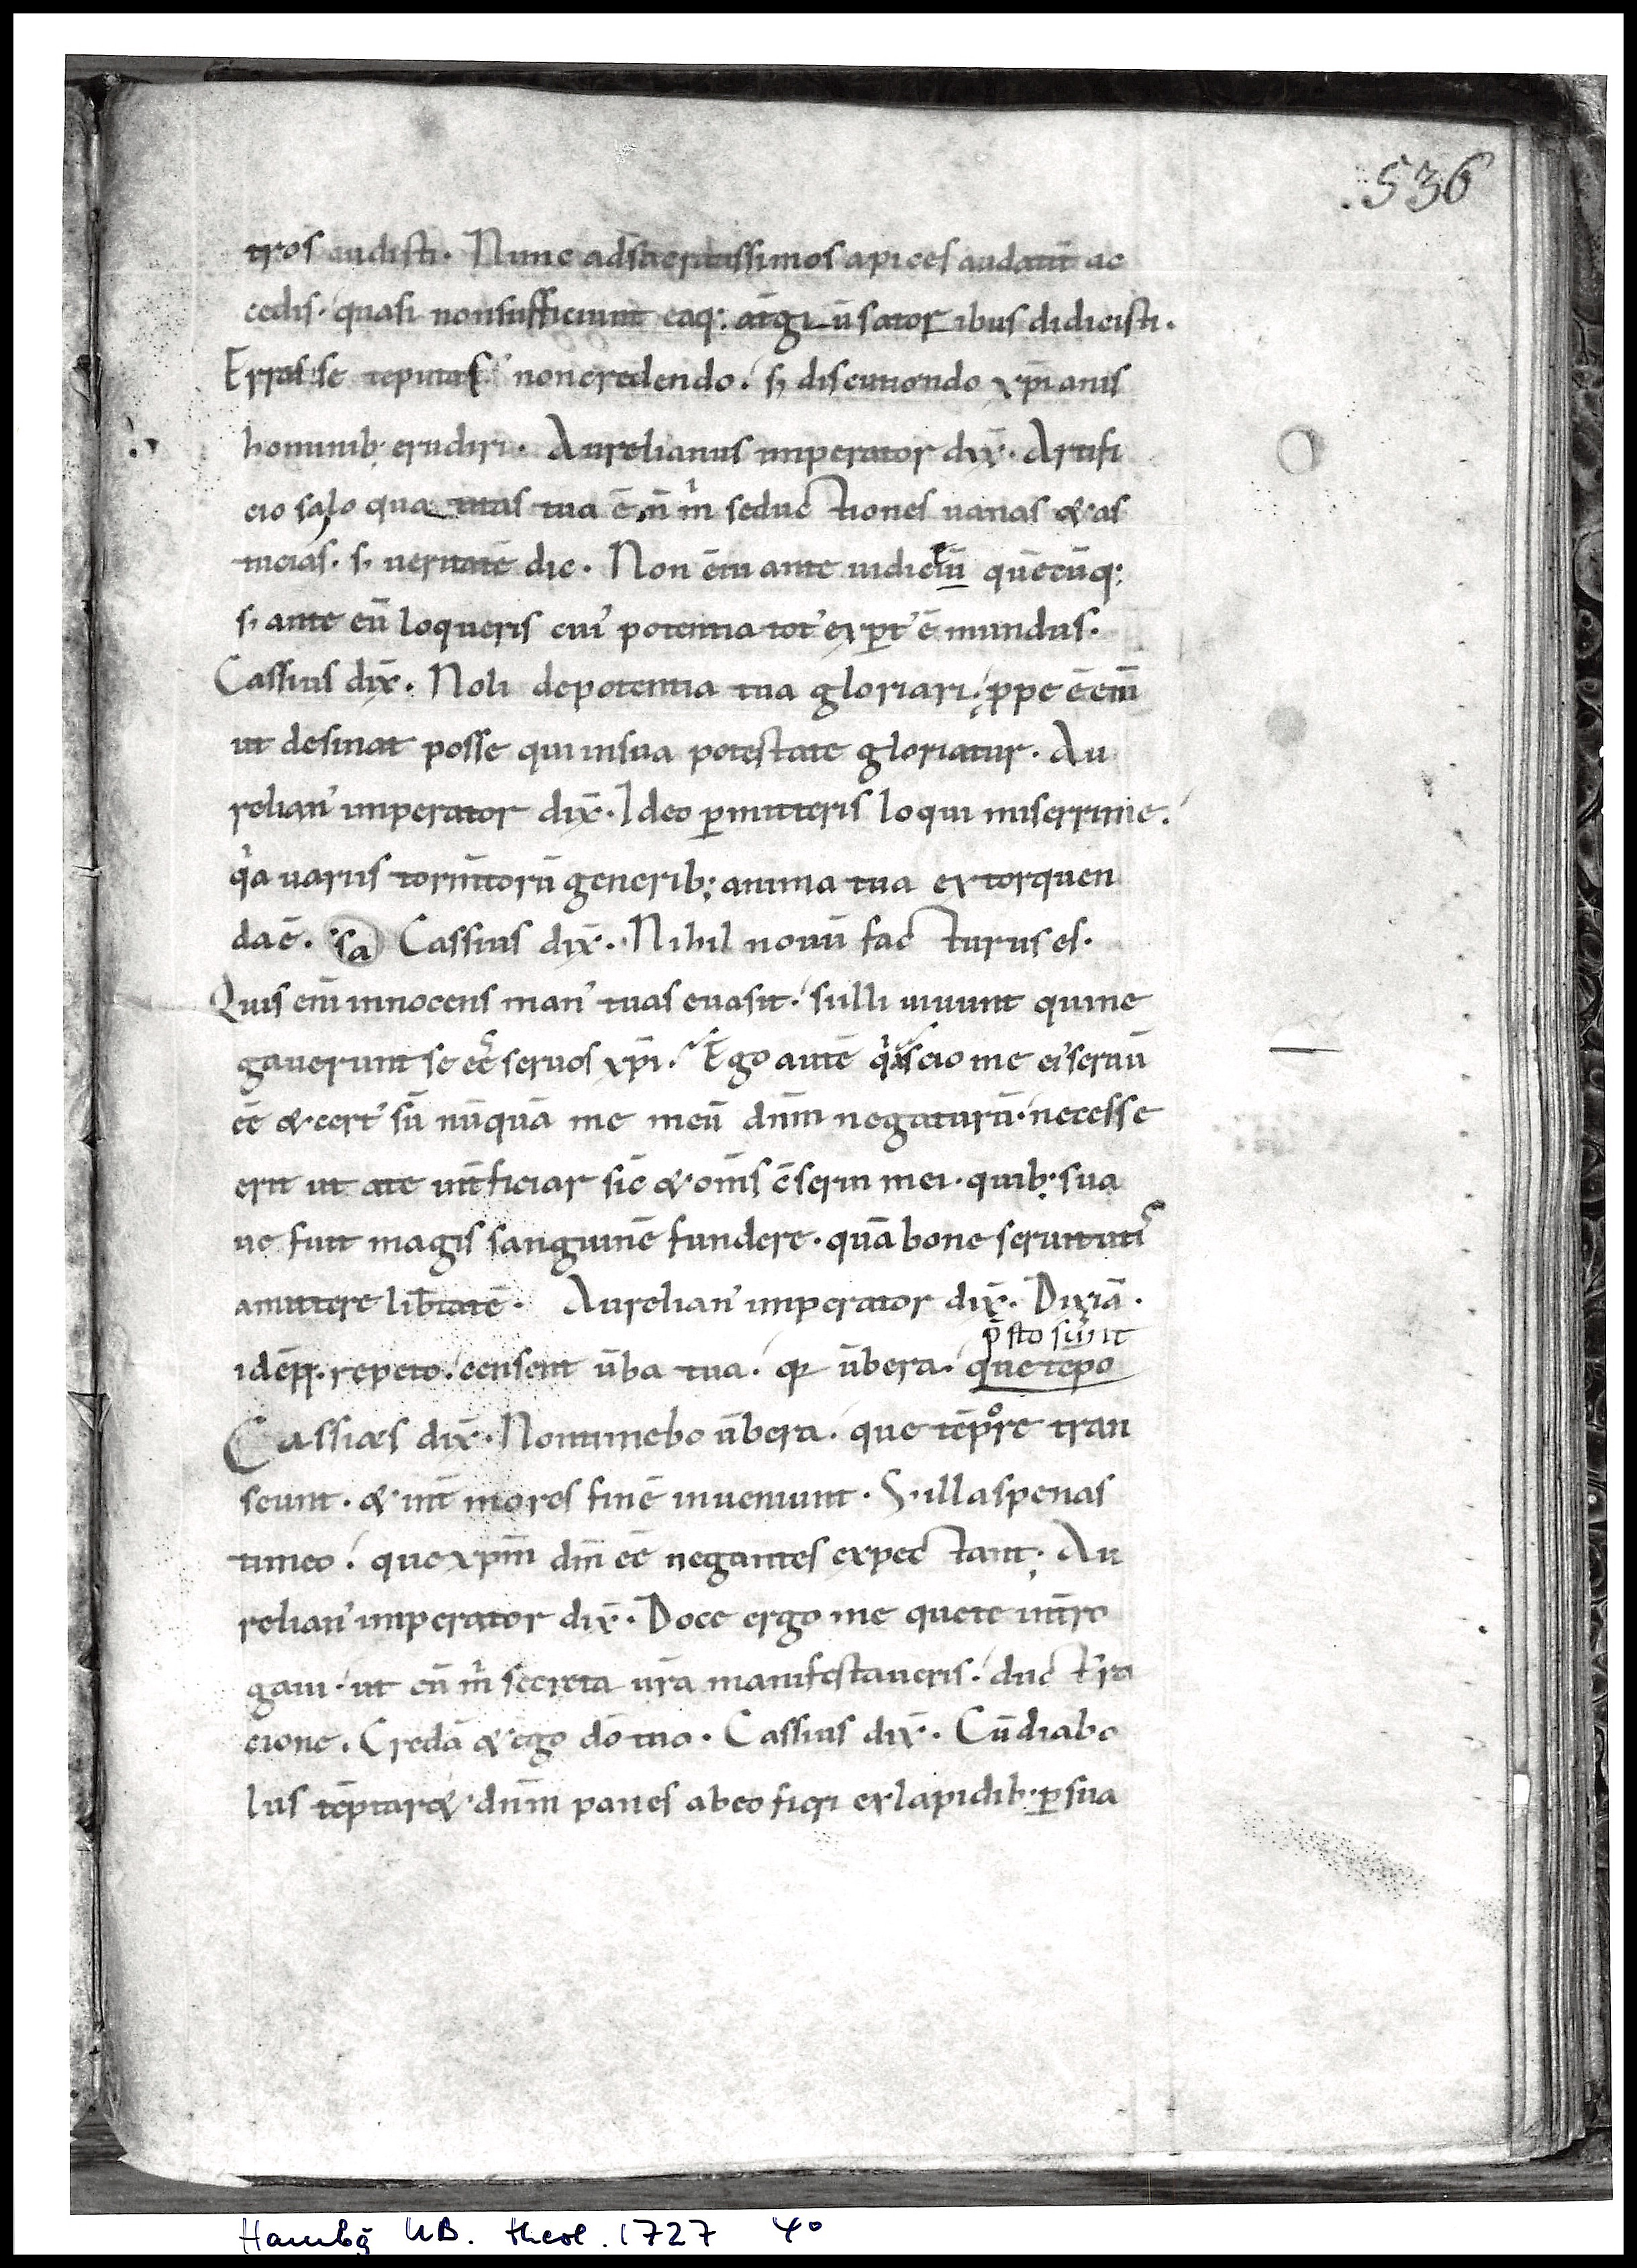 536
tros audisti. Nunc ad sacratissimos apices audaut ac
cedis. quasi non sufficiunt eaq; a ūsatoribus didicisti.
Erras se reputas non credendo. s; discutiondo xp̄ianis
hominib; erudiri. Aurelianus imperator dix̄. Artifi
cio salo qua tuas tua ē n̄ m̓ seductiones uanas & as
tucias. s; ueritatē dic. Non ēm ante iudiciū quēcūq;
s; ante eū loqueris cui᾽ potentia tot᾽ exp̱t᾽ ē mundus.
Cassius dix̄. Noli de potentia tua gloriari. ꝓpe ē em̄
ut desinat posse qui in sua potestate gloriatur. Au
relian᾽ imperator dix̄. Ideo ꝑmitteris loqui miserrime.
q̓a uariis torm̄torū generib; anima tua extorquen
da ē. sa Cassius dix̄. Nihil nouū facturus es.
Quis em̄ innocens man᾽ tuas euasit. s; illi uiuunt qui ne
gauerunt se eē seruos xp̄i. Ego autē q̓a scio me ei᾽ seruū
eē & cert᾽ sū nūquā me meū dn̄m negaturū. necesse
erit ut a te int̄ficiar sic & om̄s ēserui mei. quib; sua
ue fuit magis sanguinē fundere. quā bone seruituti᾽
amittere lib̄tatē. Aurelian᾽ imperator dix̄. Dixiā.
p̄sto sunt
idēq;. repeto. censent ūba tua. qꝛ ūbera. que tēpo
Cassius dix̄. Non timebo ūbera. que tēpore tran
seunt. & int̄ mores finē inueniunt. S; illas penas
timeo. que xp̄m dn̄m eē negantes expectant; Au
relian᾽ imperator dix̄. Doce ergo me que te int̄ro
gaui. ut cū m̓ secreta ur̄a manifestaueris. duct᾽ ra
cione. Credā & ego dō tuo. Cassius dix̄. Cū diabo
lus tēptar& dn̄m panes ab eo fieri ex lapidib; ꝑsua
Hambg UB. theol. 1727 4°